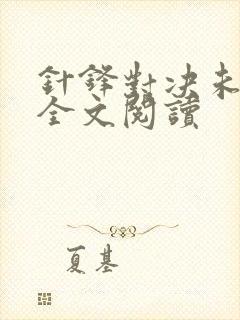 針鋒對決未
全文閱讀
夏基